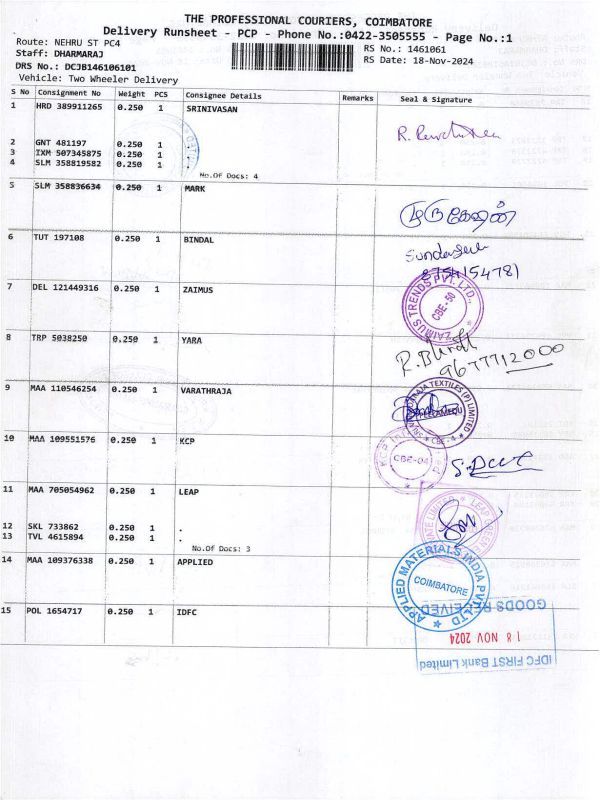 THE PROFESSIONAL COURIERS, COIMBATORE
Delivery Runsheet - PCP - Phone No.:0422-3505555 - Page No.:1
Route: NEHRU ST PC4
RS No.: 1461061
Staff: DHARMARAJ
RS Date: 18-Nov-2024
DRS No.: DCJB146106101
Vehicle: Two Wheeler Delivery
S No Consignment No Weight PCS Consignee Details Remarks Seal & Signature
1 HRD 389911265 0.250 1 SRINIVASAN
2 GNT 481197 0.250 1 .
3 IXM 507345875 0.250 1 .
4 SLM 358819582 0.250 1 .
No.Of Docs: 4
5 SLM 358836634 0.250 1 MARK
முருகேஷன்
6 TUT 197108 0.250 1 BINDAL
8754154781
7 DEL 121449316 0.250 1 ZAIMUS
ZAIMUS TRENDS PVT. LTD.,
CBE-50
8 TRP 5038250 0.250 1 YARA
9677712000
9 MAA 110546254 0.250 1 VARATHRAJA
TEXTILES (P) LIMITED
CBE-4
10 MAA 109551576 0.250 1 KCP
KCP
CBE-04
11 MAA 705054962 0.250 1 LEAP
LEAP GREEN
PRIVATE LIMITED
12 SKL 733862 0.250 1 .
13 TVL 4615894 0.250 1 .
No.Of Docs: 3
14 MAA 109376338 0.250 1 APPLIED
APPLIED MATERIALS INDIA PVT. LTD
COIMBATORE
15 POL 1654717 0.250 1 IDFC
GOODS RECEIVED
18 NOV 2024
IDFC FIRST Bank Limited